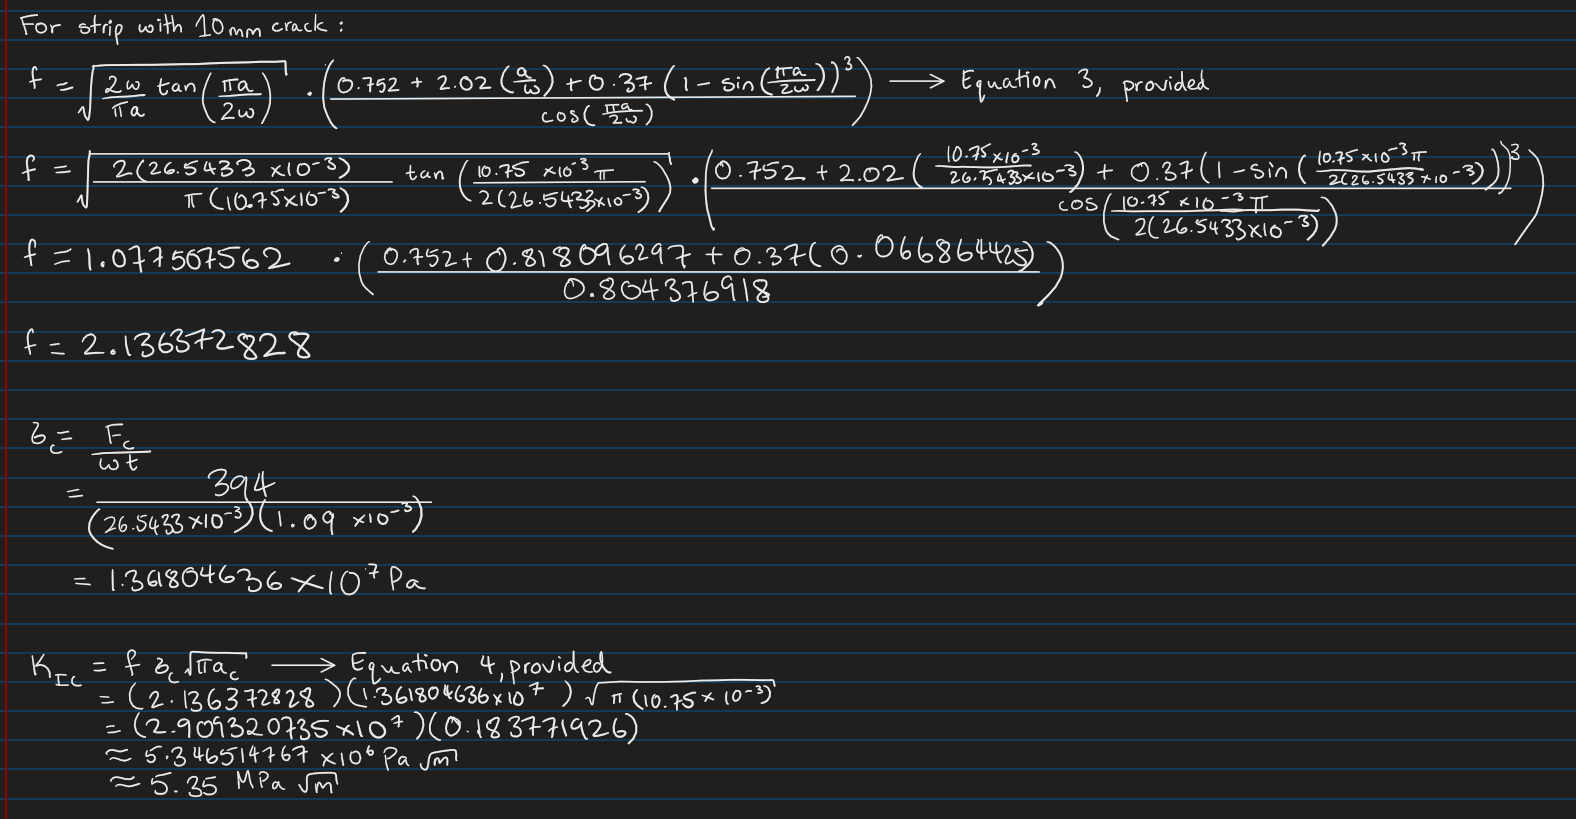 For strip with 10mm crack :
f = √(2w/πa tan(πa/2w)) · ((0.752 + 2.02(a/w) + 0.37(1 - sin(πa/2w))³)/cos(πa/2w)) → Equation 3, provided
f = √(2(26.5433 ×10⁻³)/π(10.75×10⁻³) tan(10.75 ×10⁻³ π/2(26.5433×10⁻³))) · ((0.752 + 2.02(10.75×10⁻³/26.5433×10⁻³) + 0.37(1 - sin(10.75×10⁻³π/2(26.5433×10⁻³)))³)/cos(10.75 ×10⁻³ π/2(26.5433×10⁻³)))
f = 1.077507562 · ((0.752 + 0.818096297 + 0.37(0.066864425))/0.804376918)
f = 2.136372828
σc = Fc/wt
= 394/(26.5433×10⁻³)(1.09 ×10⁻³)
= 1.361804636 ×10⁷ Pa
K_IC = f σc √πac → Equation 4, provided
= (2.136372828)(1.361804636×10⁷) √π(10.75×10⁻³)
= (2.909320735×10⁷)(0.183771926)
≈ 5.346514767 ×10⁶ Pa √m
≈ 5.35 MPa √m